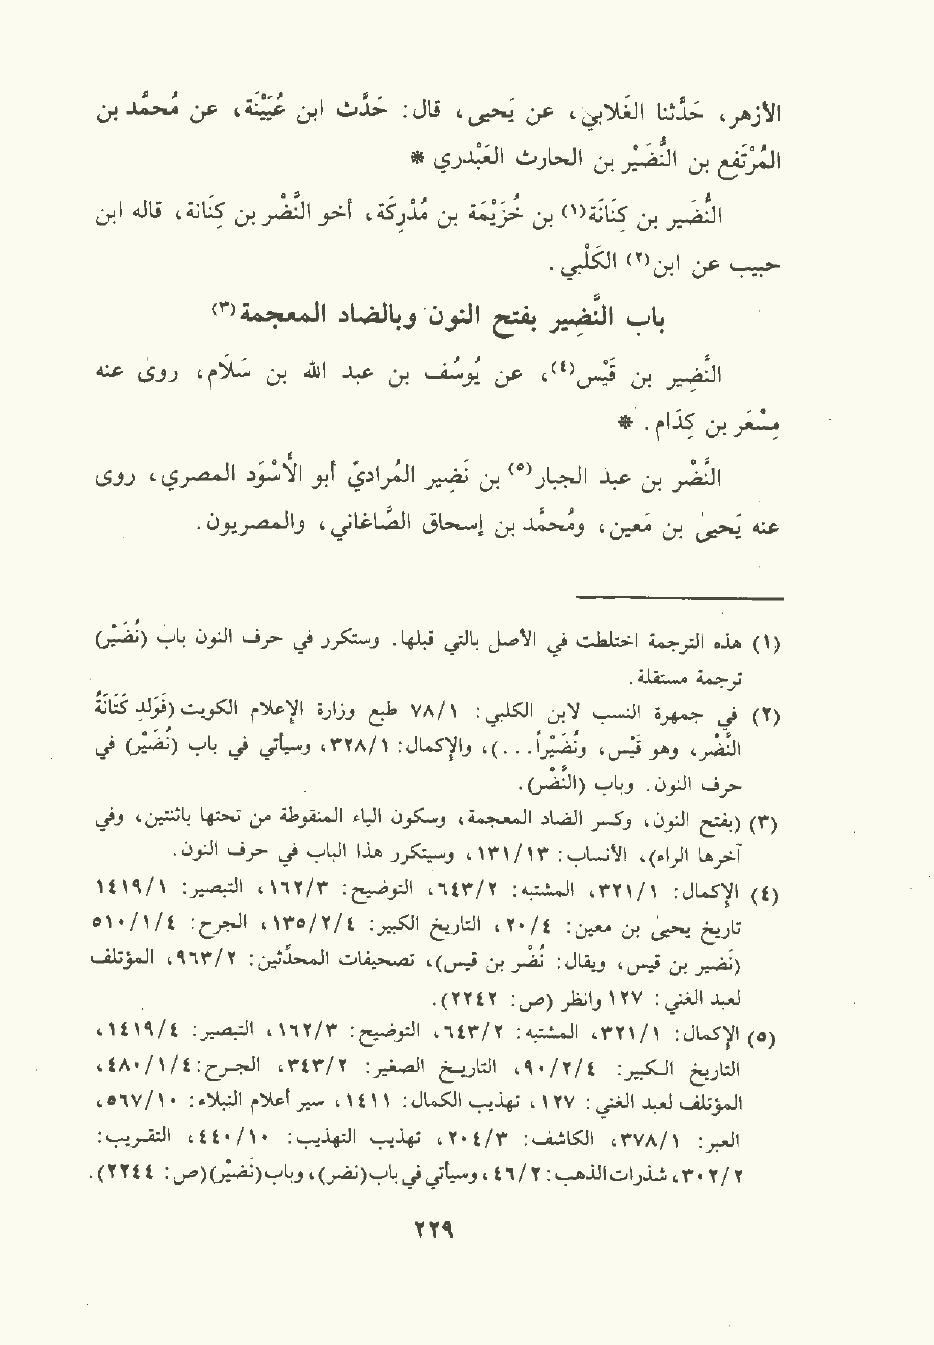 الأزهر، حَدَّثنا الغَلابي، عن يَحيى، قال: حَدَّث ابن عُيَيْنَة، عن مُحمَّد بن
المُرْتَفِع بن النُّضَيْر بن الحارث العَبْدري *
النُّضَير بن كِنَانَة(١) بن خُزَيْمَة بن مُدرِكَة، أخو النَّضْر بن كِنَانة، قاله ابن
حبيب عن ابن(٢) الكَلْبي.
باب النَّضِير بفتح النون وبالضاد المعجمة(٣)
النَّضِير بن قَيْس(٤)، عن يُوسُف بن عبد الله بن سَلَام، روى عنه
مِسْعَر بن كِدَام. *
النَّضْر بن عبد الجبار(٥) بن نَضِير المُراديّ أبو الأَسْوَد المصري، روى
عنه يَحيىٰ بن مَعين، ومُحمَّد بن إسحاق الصَّاغاني، والمصريون.
(١) هذه الترجمة اختلطت في الأصل بالتي قبلها. وستكرر في حرف النون باب (نُضَيْر)
ترجمة مستقلة.
(٢) في جمهرة النسب لابن الكلبي: ٧٨/١ طبع وزارة الإعلام الكويت (فَوَلد كَنَانَةُ
النَّضْر، وهو قَيْس، ونُضَيْراً. . .)، والإكمال: ٣٢٨/١، وسيأتي في باب (نُضَيْر) في
حرف النون. وباب (النَّضْر).
(٣) (بفتح النون، وكسر الضاد المعجمة، وسكون الياء المنقوطة من تحتها باثنتين، وفي
آخرها الراء)، الأنساب: ١٣١/١٣، وسيتكرر هذا الباب في حرف النون.
(٤) الإكمال: ٣٢١/١، المشتبه: ٦٤٣/٢، التوضيح: ١٦٢/٣، التبصير: ١٤١٩/١
تاريخ يحيىٰ بن معين: ٢٠/٤، التاريخ الكبير: ١٣٥/٢/٤، الجرح: ٥١٠/١/٤
(نَضير بن قيس، ويقال: نُضْر بن قيس)، تصحيفات المحدِّثين: ٩٦٣/٢، المؤتلف
لعبد الغني: ١٢٧ وانظر (ص: ٢٢٤٢).
(٥) الإكمال: ٣٢١/١، المشتبه: ٦٤٣/٢، التوضيح: ١٦٢/٣، التبصير: ١٤١٩/٤،
التاريخ الكبير: ٩٠/٢/٤، التاريخ الصغير: ٣٤٣/٢، الجرح: ٤٨٠/١/٤،
المؤتلف لعبد الغني: ١٢٧، تهذيب الكمال: ١٤١١، سير أعلام النبلاء: ٥٦٧/١٠،
العبر: ٣٧٨/١، الكاشف: ٢٠٤/٣، تهذيب التهذيب: ٤٤٠/١٠، التقريب:
٣٠٢/٢، شذرات الذهب: ٤٦/٢، وسيأتي في باب (نضر)، وباب (نَضِيْر)(ص: ٢٢٤٤).
٢٢٩